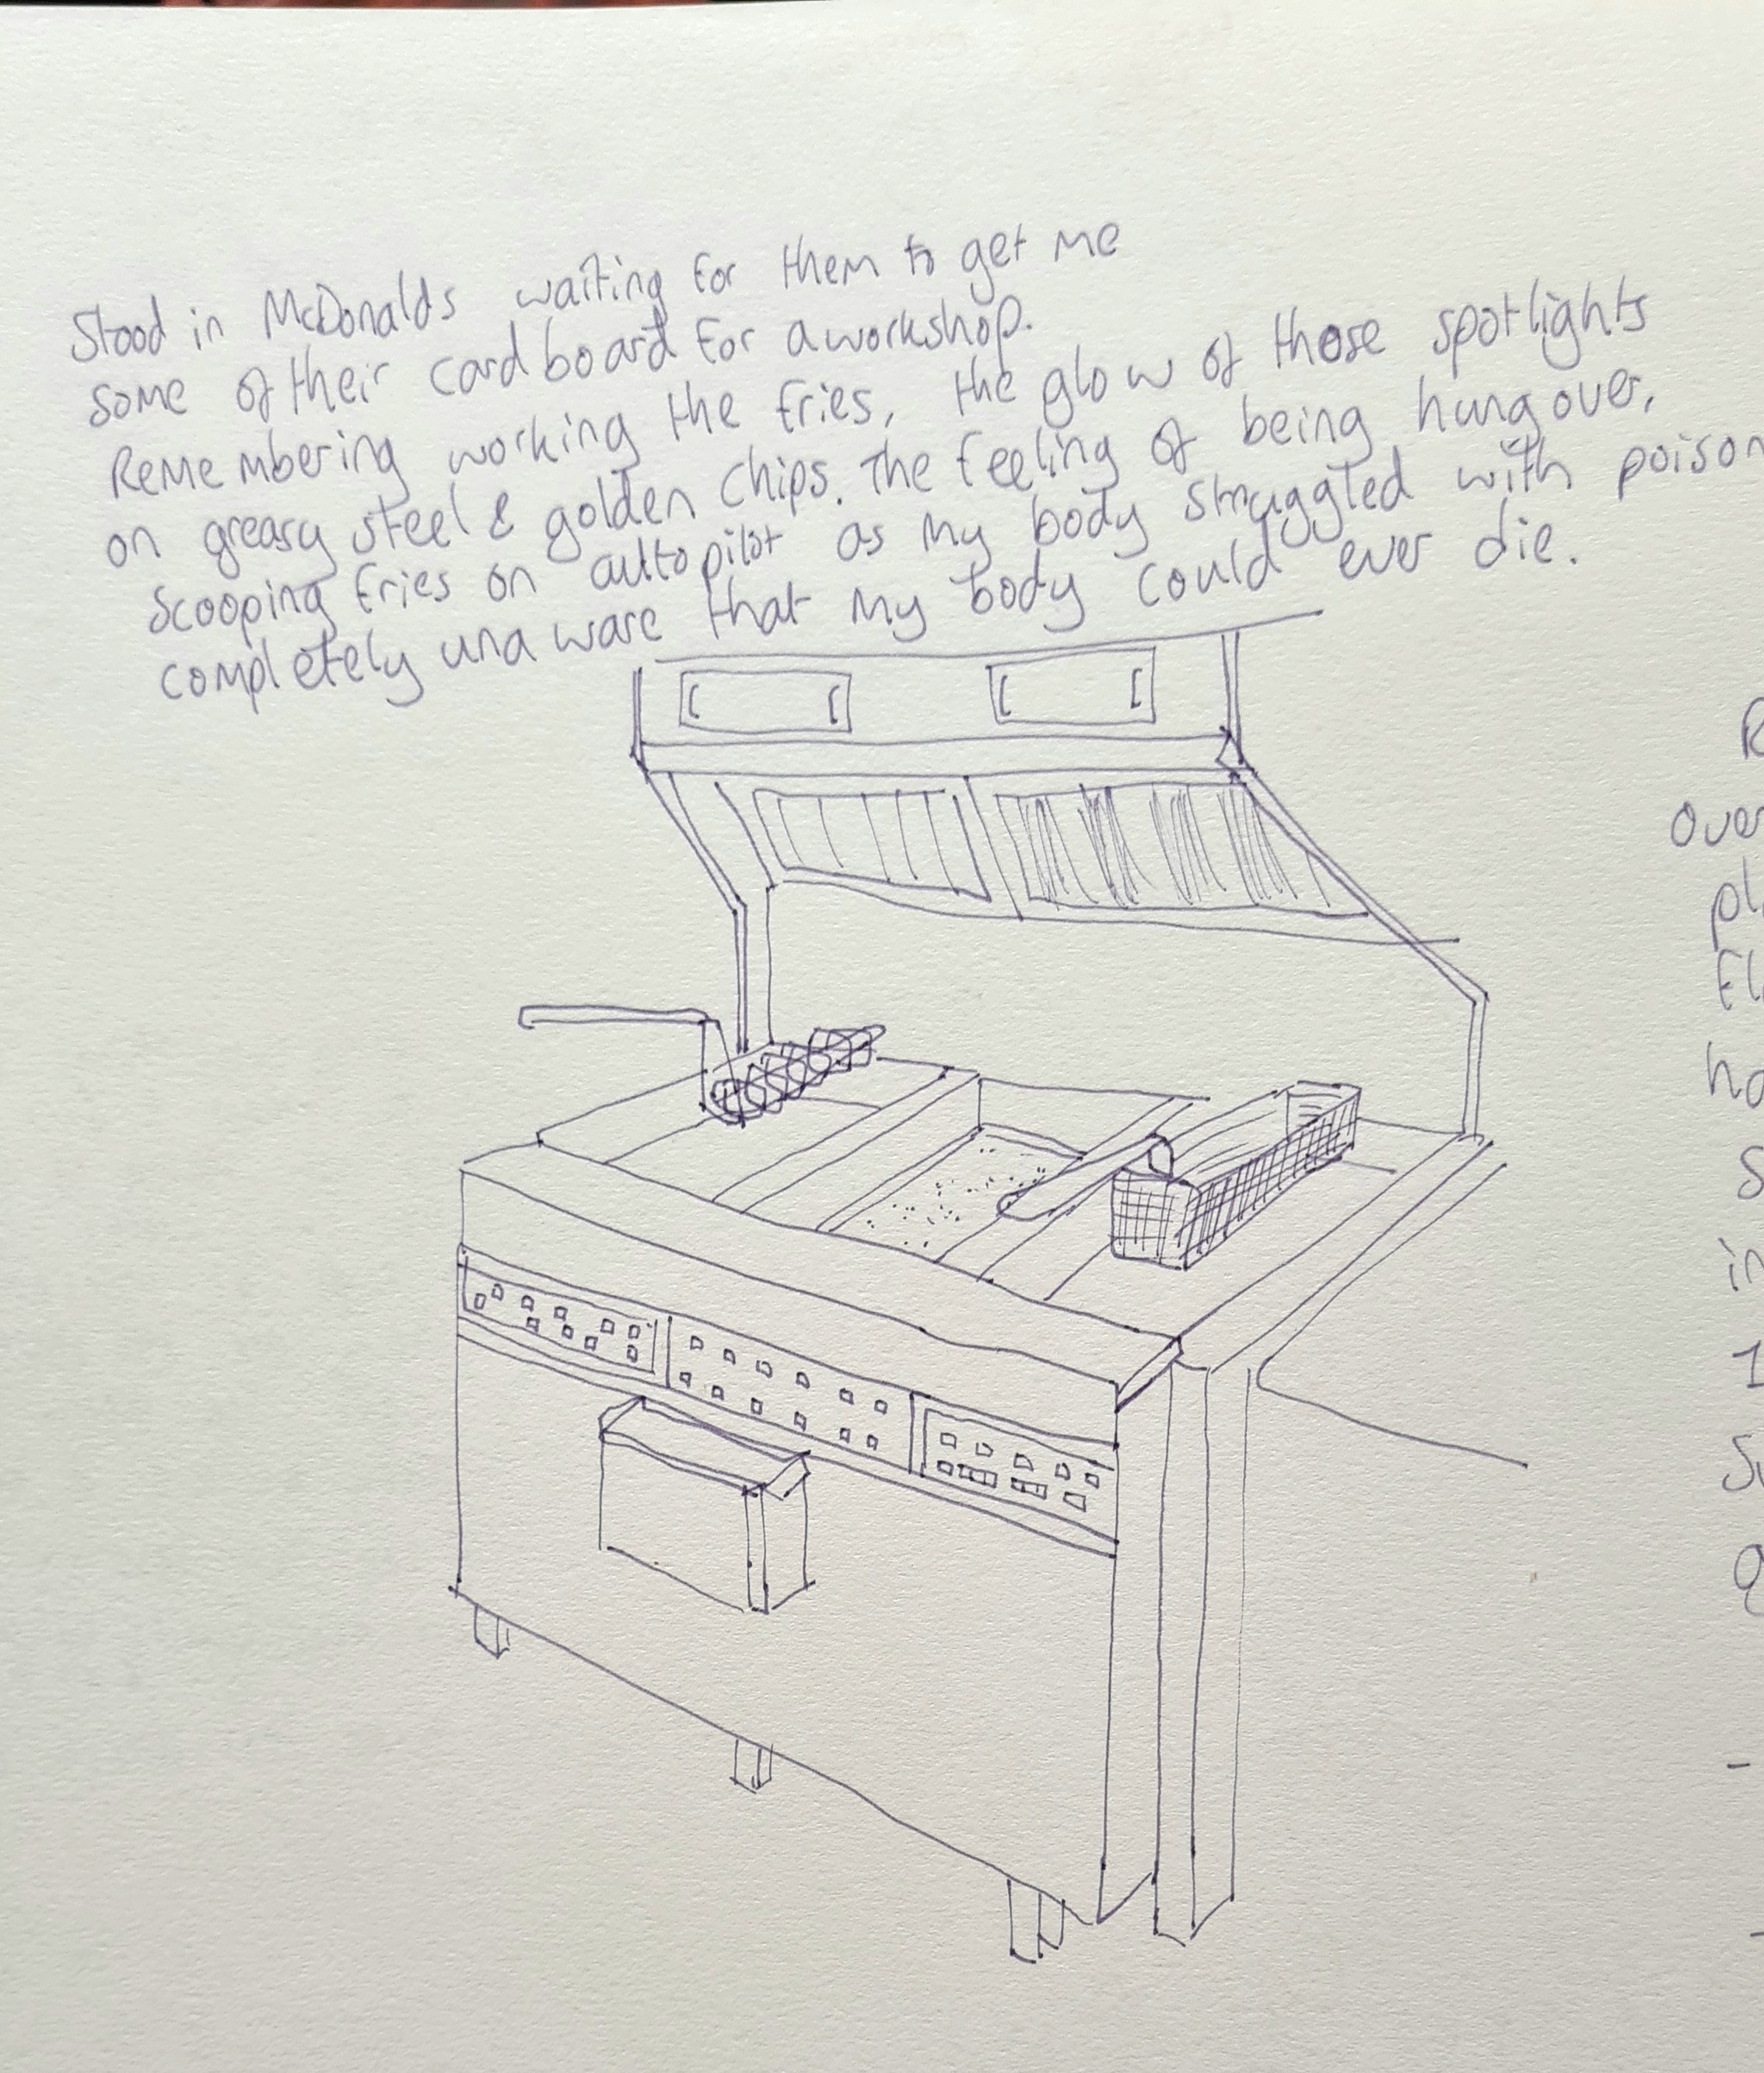 Stood in McDonalds waiting for them to get me
some of their cardboard for a workshop.
Remembering working the fries, the glow of those spotlights
on greasy steel & golden chips. The feeling of being hungover,
scooping fries on autopilot as my body struggled with poison
completely unaware that my body could ever die.
R
over
pl
fl
ho
S
in
1
Su